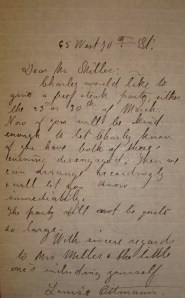 65 West 90th St.
Dear Mr. Miller:
Charley would like to
give a beef steak party, either
the 23rd or 30th of March
Now if you will be kind
enough to let Charley know
if you have both of those
evening disengaged. Then we
can arrange accordingly
& will let you know
immediately.
The party will not be quite
so large.
With sincere regards
to Mrs Miller & the little
one's including yourself
Louise Ottmann